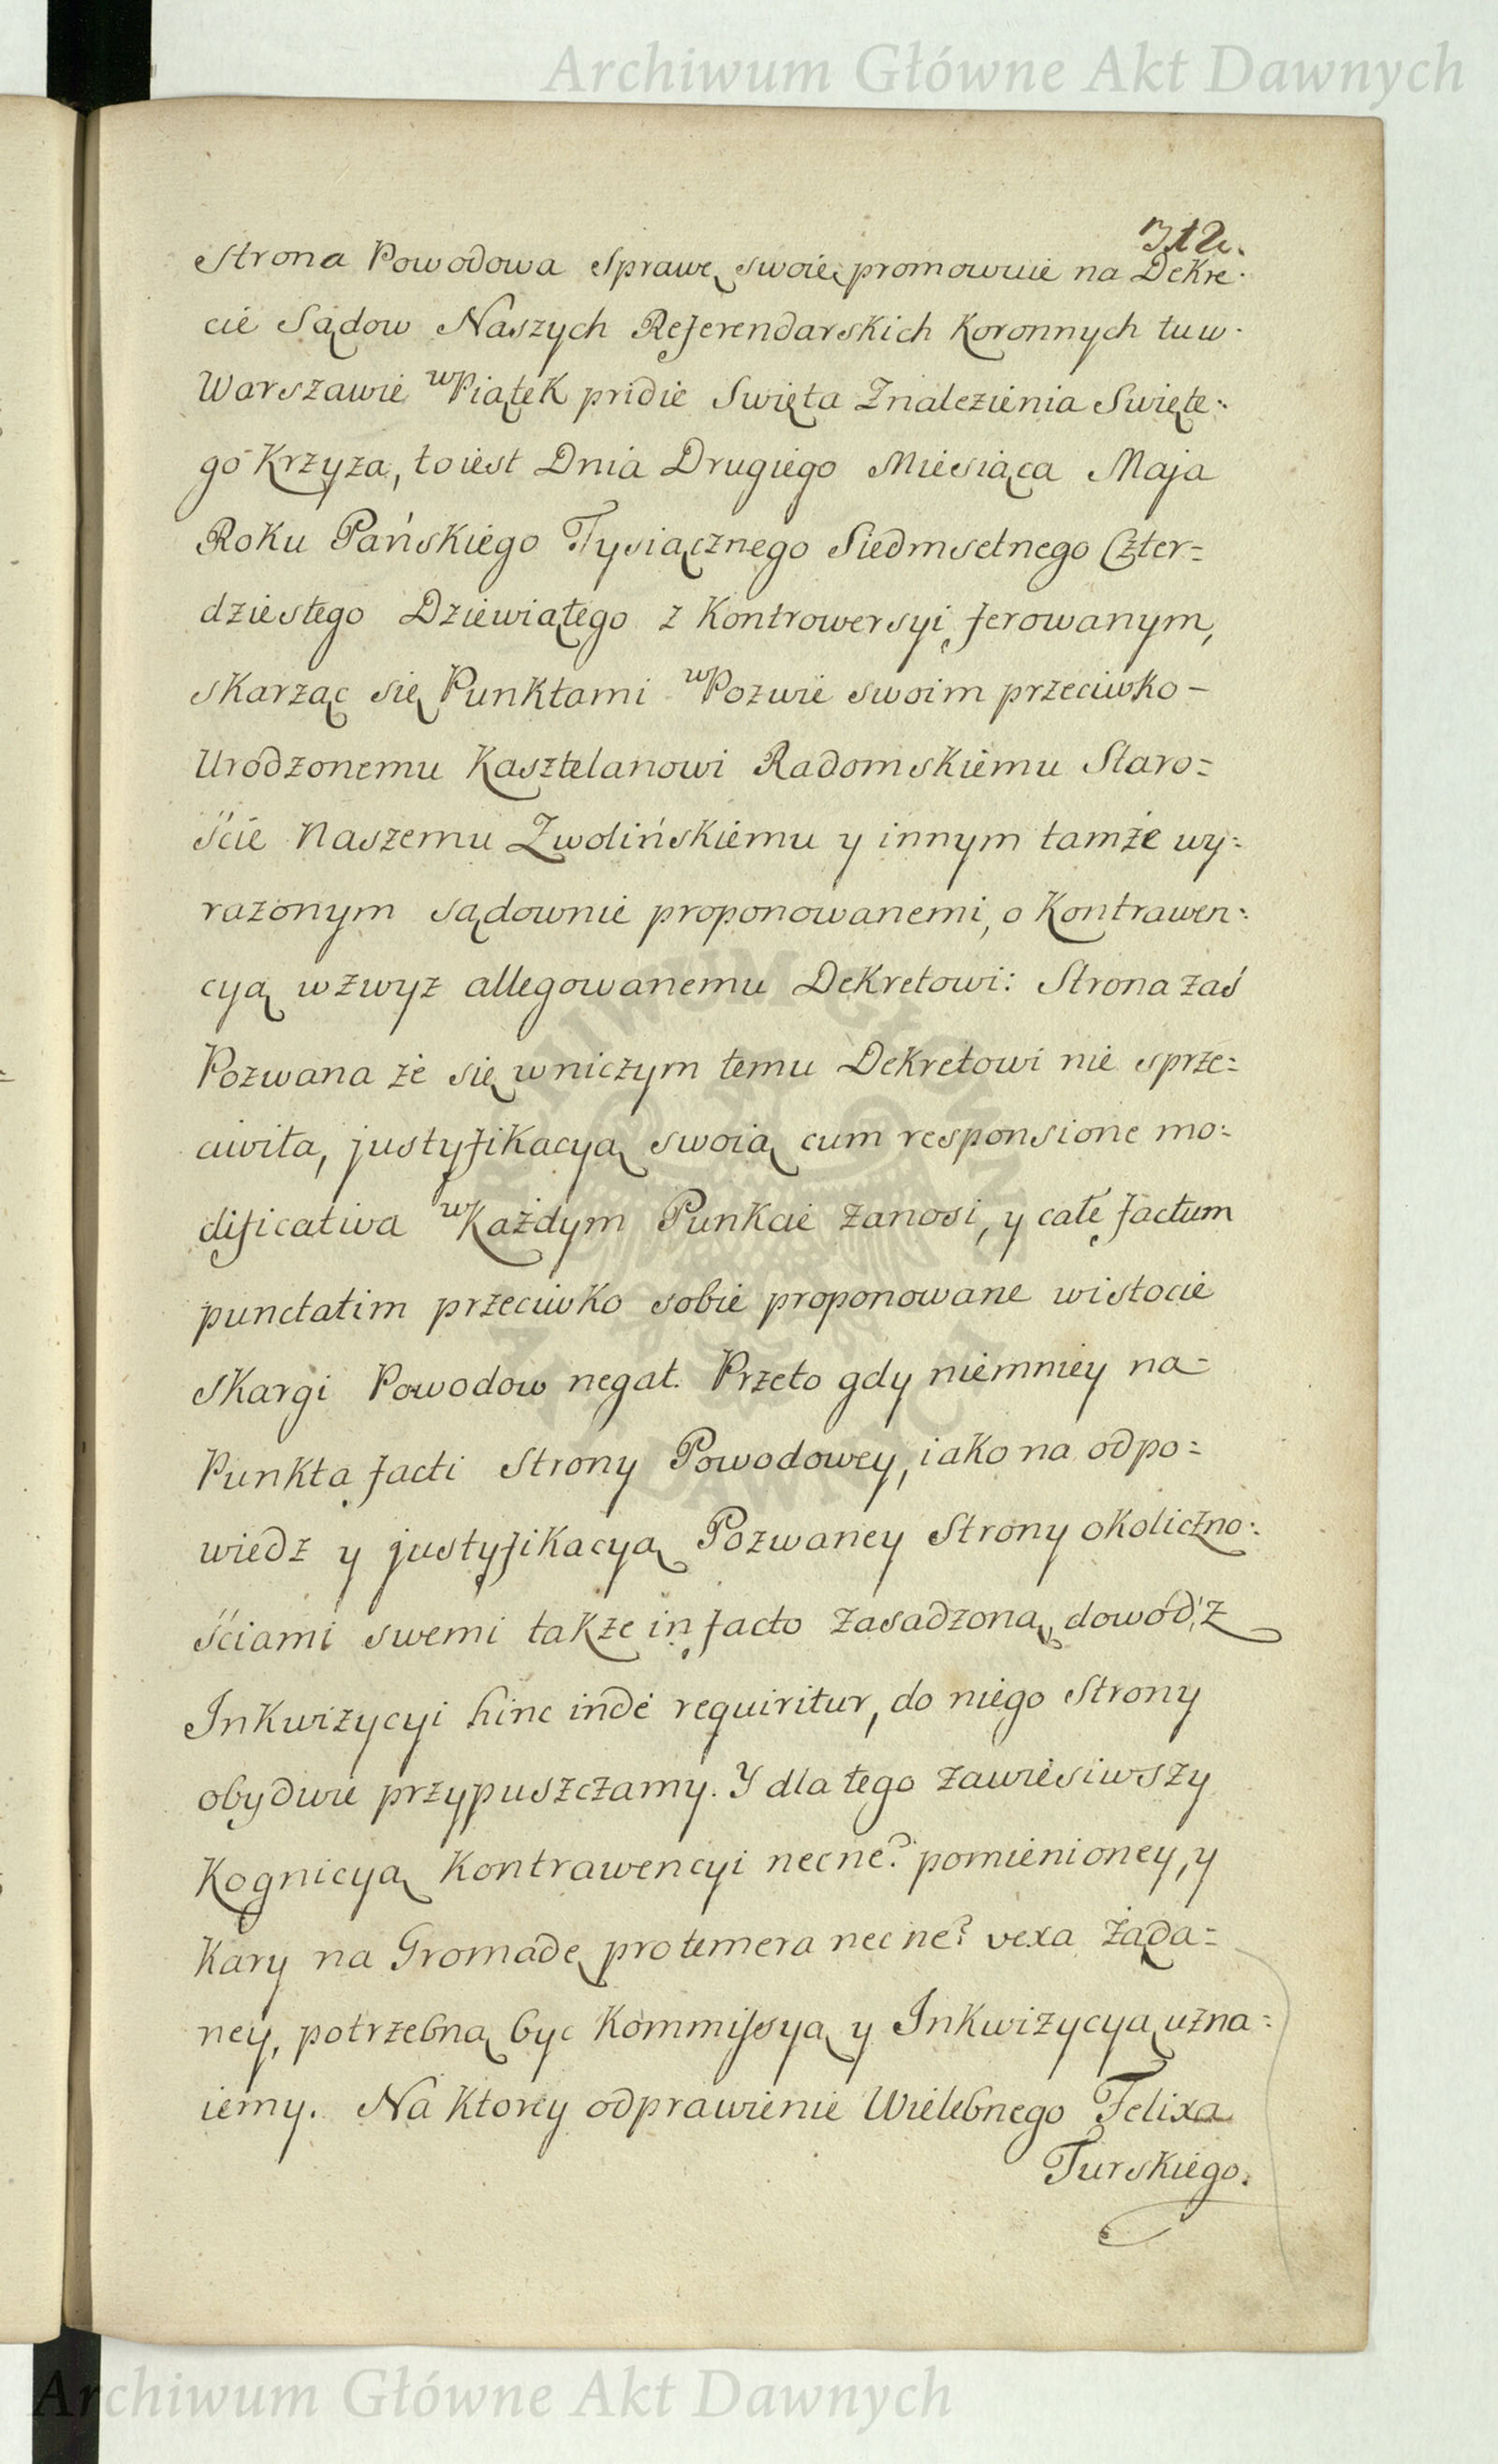 Archiwum Główne Akt Dawnych
312.
Strona Powodowa Sprawę swoię promowuie na Dekre:
cie Sądow Naszych Referendarskich Koronnych tu w
Warszawie w Piątek pridie Swięta Znalezienia Swięte:
go Krzyza, to iest Dnia Drugiego Miesiąca Maja
Roku Pańskiego Tysiącznego Siedmsetnego Czter=
dziestego Dziewiątego z Kontrowersyi ferowanym,
skarząc się Punktami w Pozwie swoim przeciwko –
Urodzonemu Kasztelanowi Radomskiemu Staro=
ście Naszemu Zwolińskiemu y innym tamże wy:
razonym sądownie proponowanemi, o Kontrawen:
cyą wzwyz allegowanemu Dekretowi: Strona zaś
Pozwana że się w niczym temu Dekretowi nie sprze:
ciwiła, justyfikacyą swoią cum responsione mo:
dificativa w Każdym Punkcie zanosi, y całe factum
punctatim przeciwko sobie proponowane w istocie
Skargi Powodow negat. Przeto gdy niemniey na=
Punkta facti Strony Powodowey, iako na odpo=
wiedz y justyfikacyą Pozwaney Strony okoliczno:
ściami swemi takze in facto zasadzoną, dowód z
Inkwizycyi hinc inde requiritur, do niego Strony
obydwie przypuszczamy. Y dla tego zawiesiwszy
Kognicyą Kontrawencyi necne? pomienioney, y
Kary na Gromadę pro temera necne? vexa żąda=
ney, potrzebną byc Kommissyą y Inkwizycyą uzna:
iemy. Na Ktorey odprawienie Wielebnego Felixa
Turskiego.
ARCHIWUM GŁÓWNE AKT DAWNYCH
Archiwum Główne Akt Dawnych